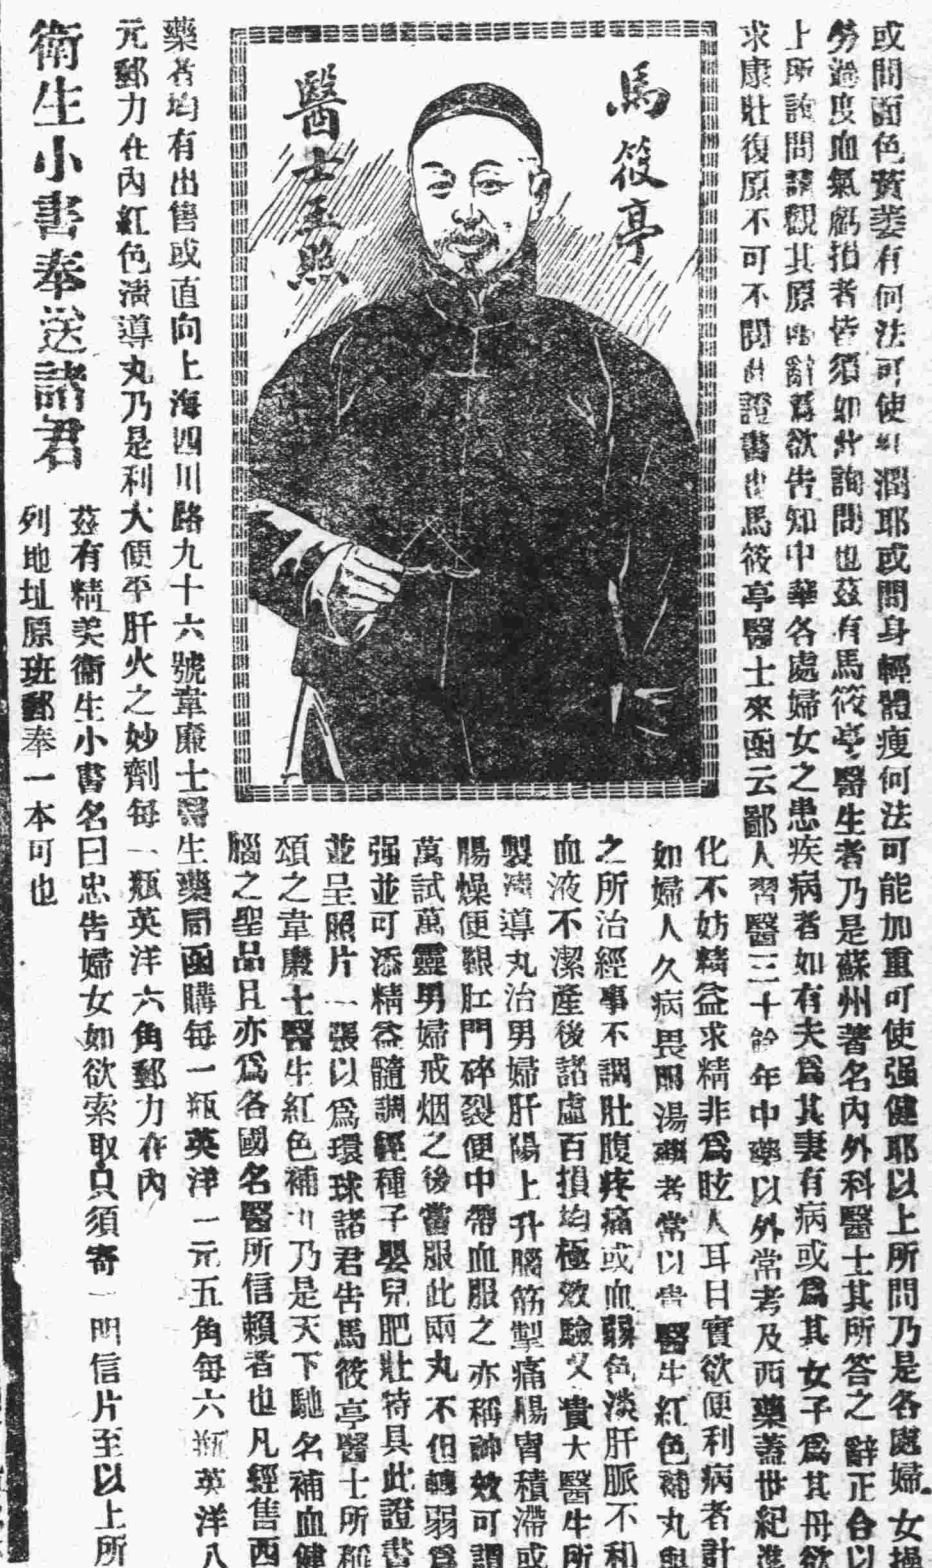 或問面色黃萎有何法可使紅潤耶或問身輕體瘦何法可能加重可使强健耶以上所問乃是各處婦女操
勞過度血氣虧損者皆須如此詢問也茲有馬筱亭醫生者乃是蘇州著名內外科醫士其所答之辭正合以
上所詢問請觀其原函辭爲欲告知中華各處婦女之患疾病者如有夫爲其妻有病或爲其女子爲其母欲
求康壯復原不可不閱此證書也馬筱亭醫士來函云鄙人習醫三十餘年中藥以外常考及西藥蓋世紀進
馬筱亭
醫士玉照
化不妨精益求精非爲眩人耳目實欲便利病者計
如婦人久病畏服湯藥者常以貴醫生紅色補丸與
之所治經事不調肚腹疼痛或血弱色淡肝脈不和
血液不潔產後諸虛百損均極效驗又貴大醫生所
製淸導丸治男婦肝陽上升腦筋掣痛腸胃積滯或
腸燥便艱肛門碎裂便中帶血服之亦稱神效可謂
萬試萬靈男婦戒烟之後當服此兩丸不但轉弱爲
强並可添精益髓調經種子嬰兒肥壯特具此證書
並呈照片一張以爲環球諸君告馬筱亭醫士所稱
頌之韋廉士醫生紅色補丸乃是天下馳名補血健
腦之聖品且亦爲各國名醫所信賴者也凡經售西
藥者均有出售或直向上海四川路九十六號韋廉士醫生藥局函購每一瓶英洋一元五角每六瓶英洋八
元郵力在內紅色淸導丸乃是利大便平肝火之妙劑每一瓶英洋六角郵力在內
衛生小書奉送諸君
茲有精美衛生小書名曰忠告婦女如欲索取只須寄一明信片至以上所
列地址原班郵奉一本可也